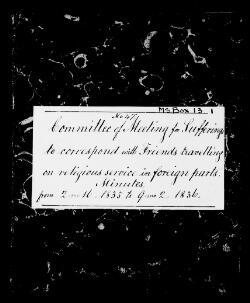 MS Box 13 1
No 47
Committee of Meeting for Sufferings
to correspond with Friends travelling
on religious service in foreign parts.
Minutes
from 2 mo 16. 1835 to 9 mo 2. 1836.